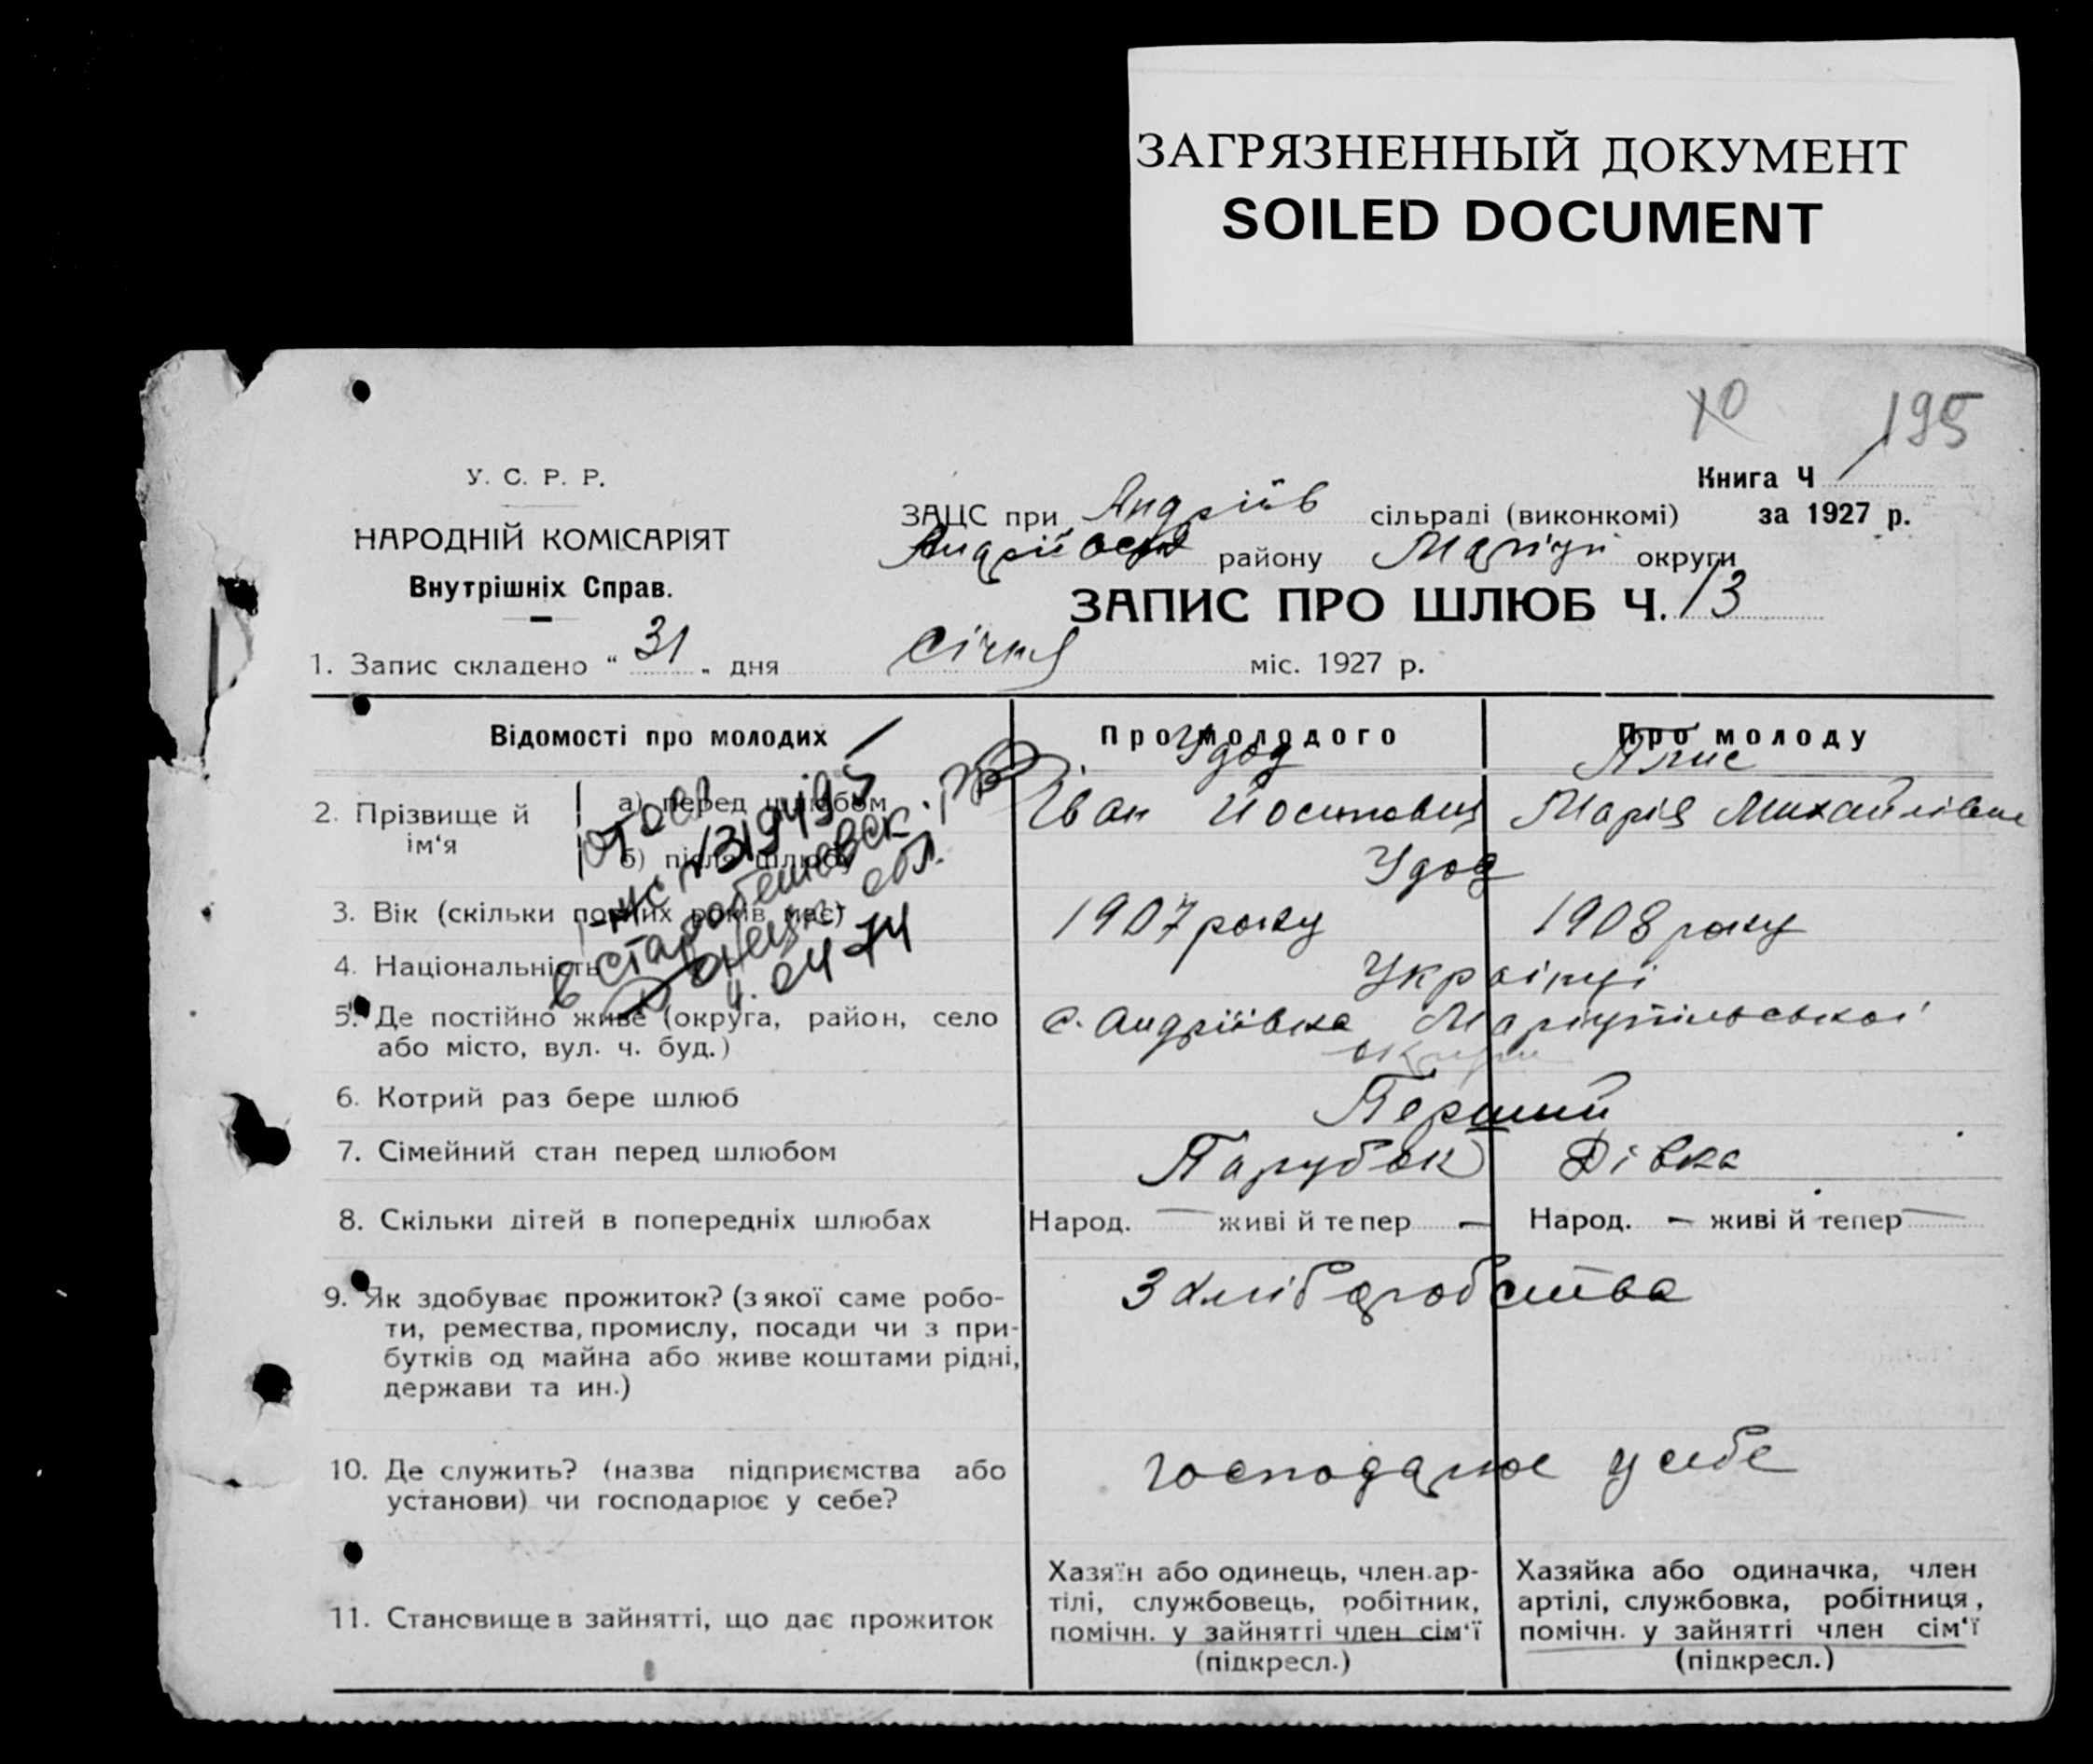 ЗАГРЯЗНЕННЫЙ ДОКУМЕНТ
SOILED DOCUMENT
10 195
У. С. Р. Р.
НАРОДНІЙ КОМІСАРІЯТ
Внутрішніх Справ.
Книга Ч
ЗАЦС при Андріїв сільраді (виконкомі) за 1927 р.
району Маріуп округи
ЗАПИС ПРО ШЛЮБ Ч. 13
1. Запис складено "31" дня січня міс. 1927 р.
Відомості про молодих Про молодого Про молоду
Удод
2. Прізвище й ім'я
а) перед шлюбом Іван Йосипович Марія Михайлівна
б) після шлюбу Удод
3. Вік (скільки повних років має) 1907 року 1908 року
4. Національність Українці
5. Де постійно живе (округа, район, село с. Андріївка Маріупільської
або місто, вул. ч. буд.) округи
6. Котрий раз бере шлюб Перший
7. Сімейний стан перед шлюбом Парубок Дівка
8. Скільки дітей в попередніх шлюбах Народ. — живі й тепер — Народ. — живі й тепер —
9. Як здобуває прожиток? (з якої саме робо- З хліборобства
ти, ремества, промислу, посади чи з при-
бутків од майна або живе коштами рідні,
держави та ин.)
10. Де служить? (назва підприємства або господарює у себе
установи) чи господарює у себе?
11. Становище в зайнятті, що дає прожиток
Хазяїн або одинець, член ар-
тілі, службовець, робітник,
помічн. у зайнятті член сім'ї
(підкресл.)
Хазяйка або одиначка, член
артілі, службовка, робітниця,
помічн. у зайнятті член сім'ї
(підкресл.)
в Старобешевск.
Донецк. обл.